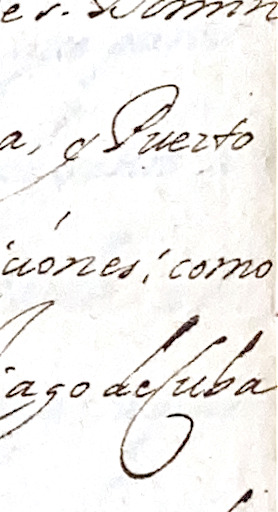 e S. Domin
a, y Puerto
ciónes; como
iago de Cuba